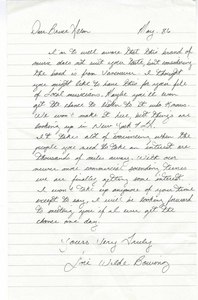 Dear Bruce                May. 86
I am so well aware that this brand of
music does not suit your taste, but considering
the band is from Vancouver I thought
you might like to have this for your file
of local musicians. Maybe you'll even
get the chance to listen to it who knows.
We won't make it here, but things are
looking up in New York
It's take a lot of convincing when the
people you need to take an interest are
thousands of miles away. With our
newer more commercial sounding tunes
we are finally getting some interest.
I won't take up anymore of your time
except to say, I will be looking forward
to meeting you if ever we get the
chance one day.
Yours Very Truly